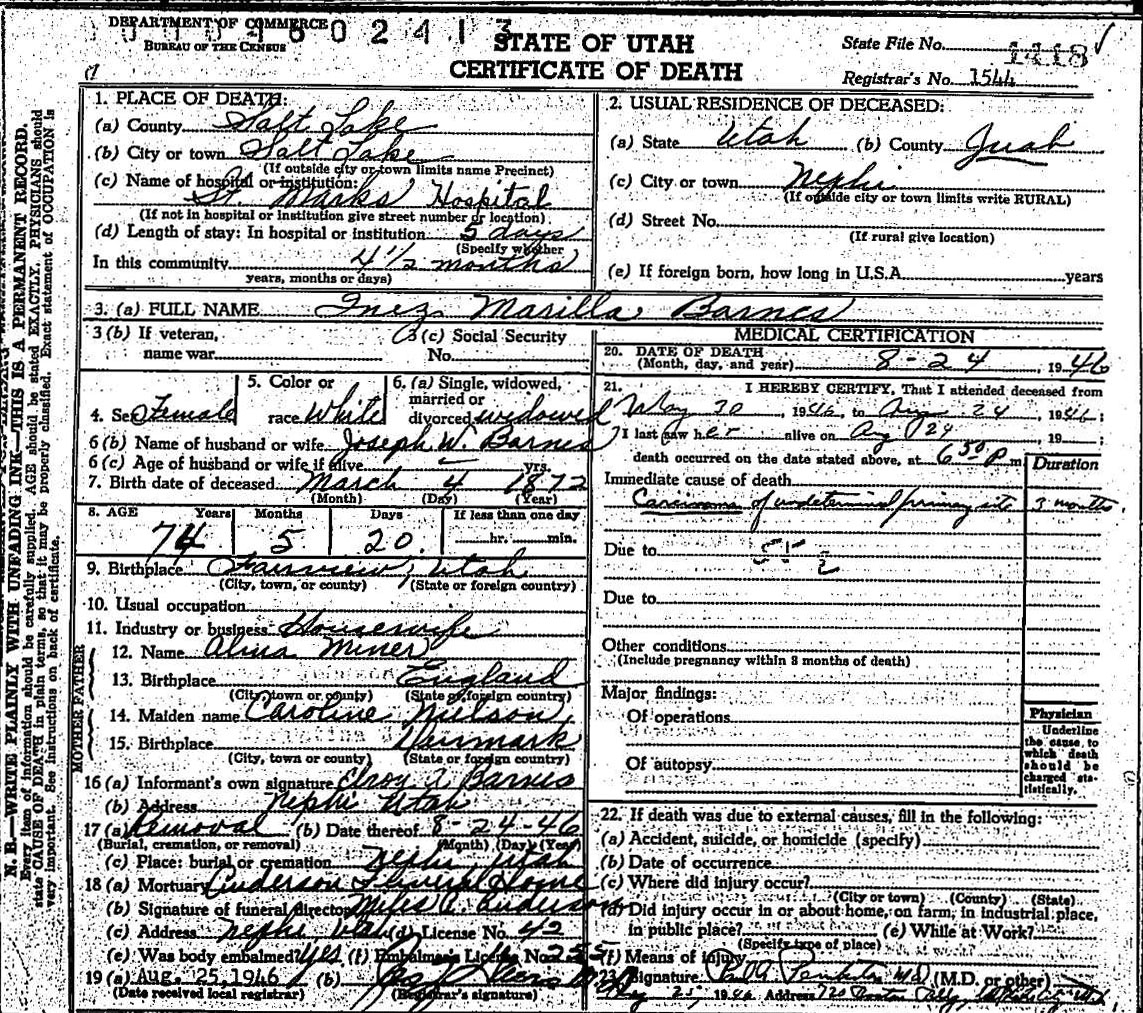 DEPARTMENT OF COMMERCE
BUREAU OF THE CENSUS
0 2 4 1 3
STATE OF UTAH
CERTIFICATE OF DEATH
State File No. 1418 ✓
Registrar's No. 1544
N. B.—WRITE PLAINLY WITH UNFADING INK—THIS IS A PERMANENT RECORD.
Every item of information should be carefully supplied. AGE should be stated EXACTLY. PHYSICIANS should
state CAUSE OF DEATH in plain terms, so that it may be properly classified. Exact statement of OCCUPATION is
very important. See instructions on back of certificate.
1. PLACE OF DEATH:
(a) County Salt Lake
(b) City or town Salt Lake
(If outside city or town limits name Precinct)
(c) Name of hospital or institution:
St. Marks Hospital
(If not in hospital or institution give street number or location)
(d) Length of stay: In hospital or institution 5 days
(Specify whether
In this community 4 1/2 months
years, months or days)
2. USUAL RESIDENCE OF DECEASED:
(a) State Utah (b) County Juab
(c) City or town Nephi
(If outside city or town limits write RURAL)
(d) Street No.
(If rural give location)
(e) If foreign born, how long in U.S.A. years
3. (a) FULL NAME Inez Marilla Barnes
3 (b) If veteran,
name war
3 (c) Social Security
No.
4. Sex Female
5. Color or
race White
6. (a) Single, widowed,
married or
divorced widowed
6 (b) Name of husband or wife Joseph W. Barnes
6 (c) Age of husband or wife if alive — yrs.
7. Birth date of deceased March 4 1872
(Month) (Day) (Year)
8. AGE Years Months Days If less than one day
74 5 20 hr. min.
9. Birthplace Fairview, Utah
(City, town, or county) (State or foreign country)
10. Usual occupation
11. Industry or business Housewife
FATHER
12. Name Alma Miner
13. Birthplace England
(City, town or county) (State or foreign country)
MOTHER
14. Maiden name Caroline Nielson
15. Birthplace Denmark
(City, town or county) (State or foreign country)
16 (a) Informant's own signature Elroy A Barnes
(b) Address Nephi Utah
17 (a) Removal (b) Date thereof 8-24-46
(Burial, cremation, or removal) (Month) (Day) (Year)
(c) Place: burial or cremation Nephi, Utah
18 (a) Mortuary Anderson Funeral Home
(b) Signature of funeral director Miles A. Anderson
(c) Address Nephi Utah (d) License No. 42
(e) Was body embalmed? Yes (f) Embalmer's License No. 255
19 (a) Aug. 25, 1946 (b)
(Date received local registrar) (Registrar's signature)
MEDICAL CERTIFICATION
20. DATE OF DEATH
(Month, day, and year) 8-24, 1946
21. I HEREBY CERTIFY, That I attended deceased from
May 30, 1946, to Aug 24, 1946;
I last saw her alive on Aug 24, 19 ;
death occurred on the date stated above, at 6 50 P m.
Duration
Immediate cause of death
Carcinoma of undetermined primary site 3 months.
Due to 55 2
Due to
Other conditions
(Include pregnancy within 3 months of death)
Major findings:
Of operations
Of autopsy
Physician
Underline
the cause to
which death
should be
charged sta-
tistically.
22. If death was due to external causes, fill in the following:
(a) Accident, suicide, or homicide (specify)
(b) Date of occurrence
(c) Where did injury occur?
(City or town) (County) (State)
(d) Did injury occur in or about home, on farm, in industrial place,
in public place? (e) While at Work?
(Specify type of place)
(f) Means of injury
23. Signature M.D. (M.D. or other)
Aug 25, 1946 Address 720